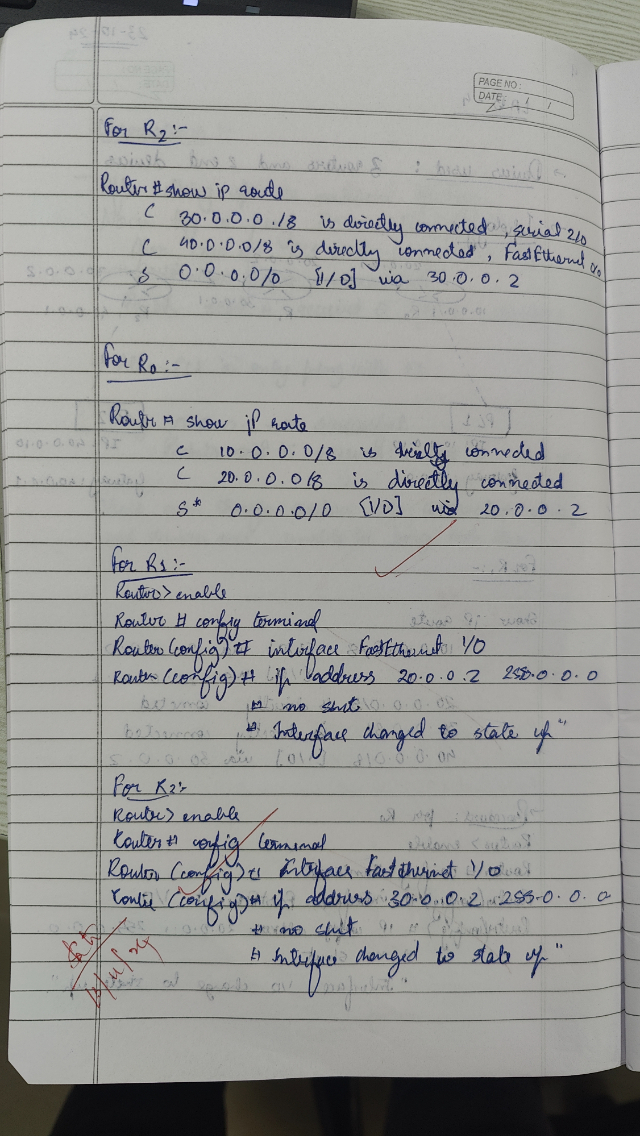 PAGE NO:
DATE: / /
For R2:-
Router # show ip route
C 30.0.0.0./8 is directly connected, serial 2/0
C 40.0.0.0/8 is directly connected, FastEthernet 1/0
S 0.0.0.0/0 [1/0] via 30.0.0.2
For R0:-
Router # show ip route
C 10.0.0.0/8 is directly connected
C 20.0.0.0/8 is directly connected
S* 0.0.0.0/0 [1/0] via 20.0.0.2
For R1:-
Router> enable
Router # config terminal
Router (config) # interface FastEthernet 1/0
Router (config) # ip address 20.0.0.2 255.0.0.0
# no shut
# Interface changed to state up"
For R2:-
Router> enable
Router # config terminal
Router (config) # interface FastEthernet 1/0
Router (config) # ip address 30.0.0.2 255.0.0.0
# no shut
# Interface changed to state up"